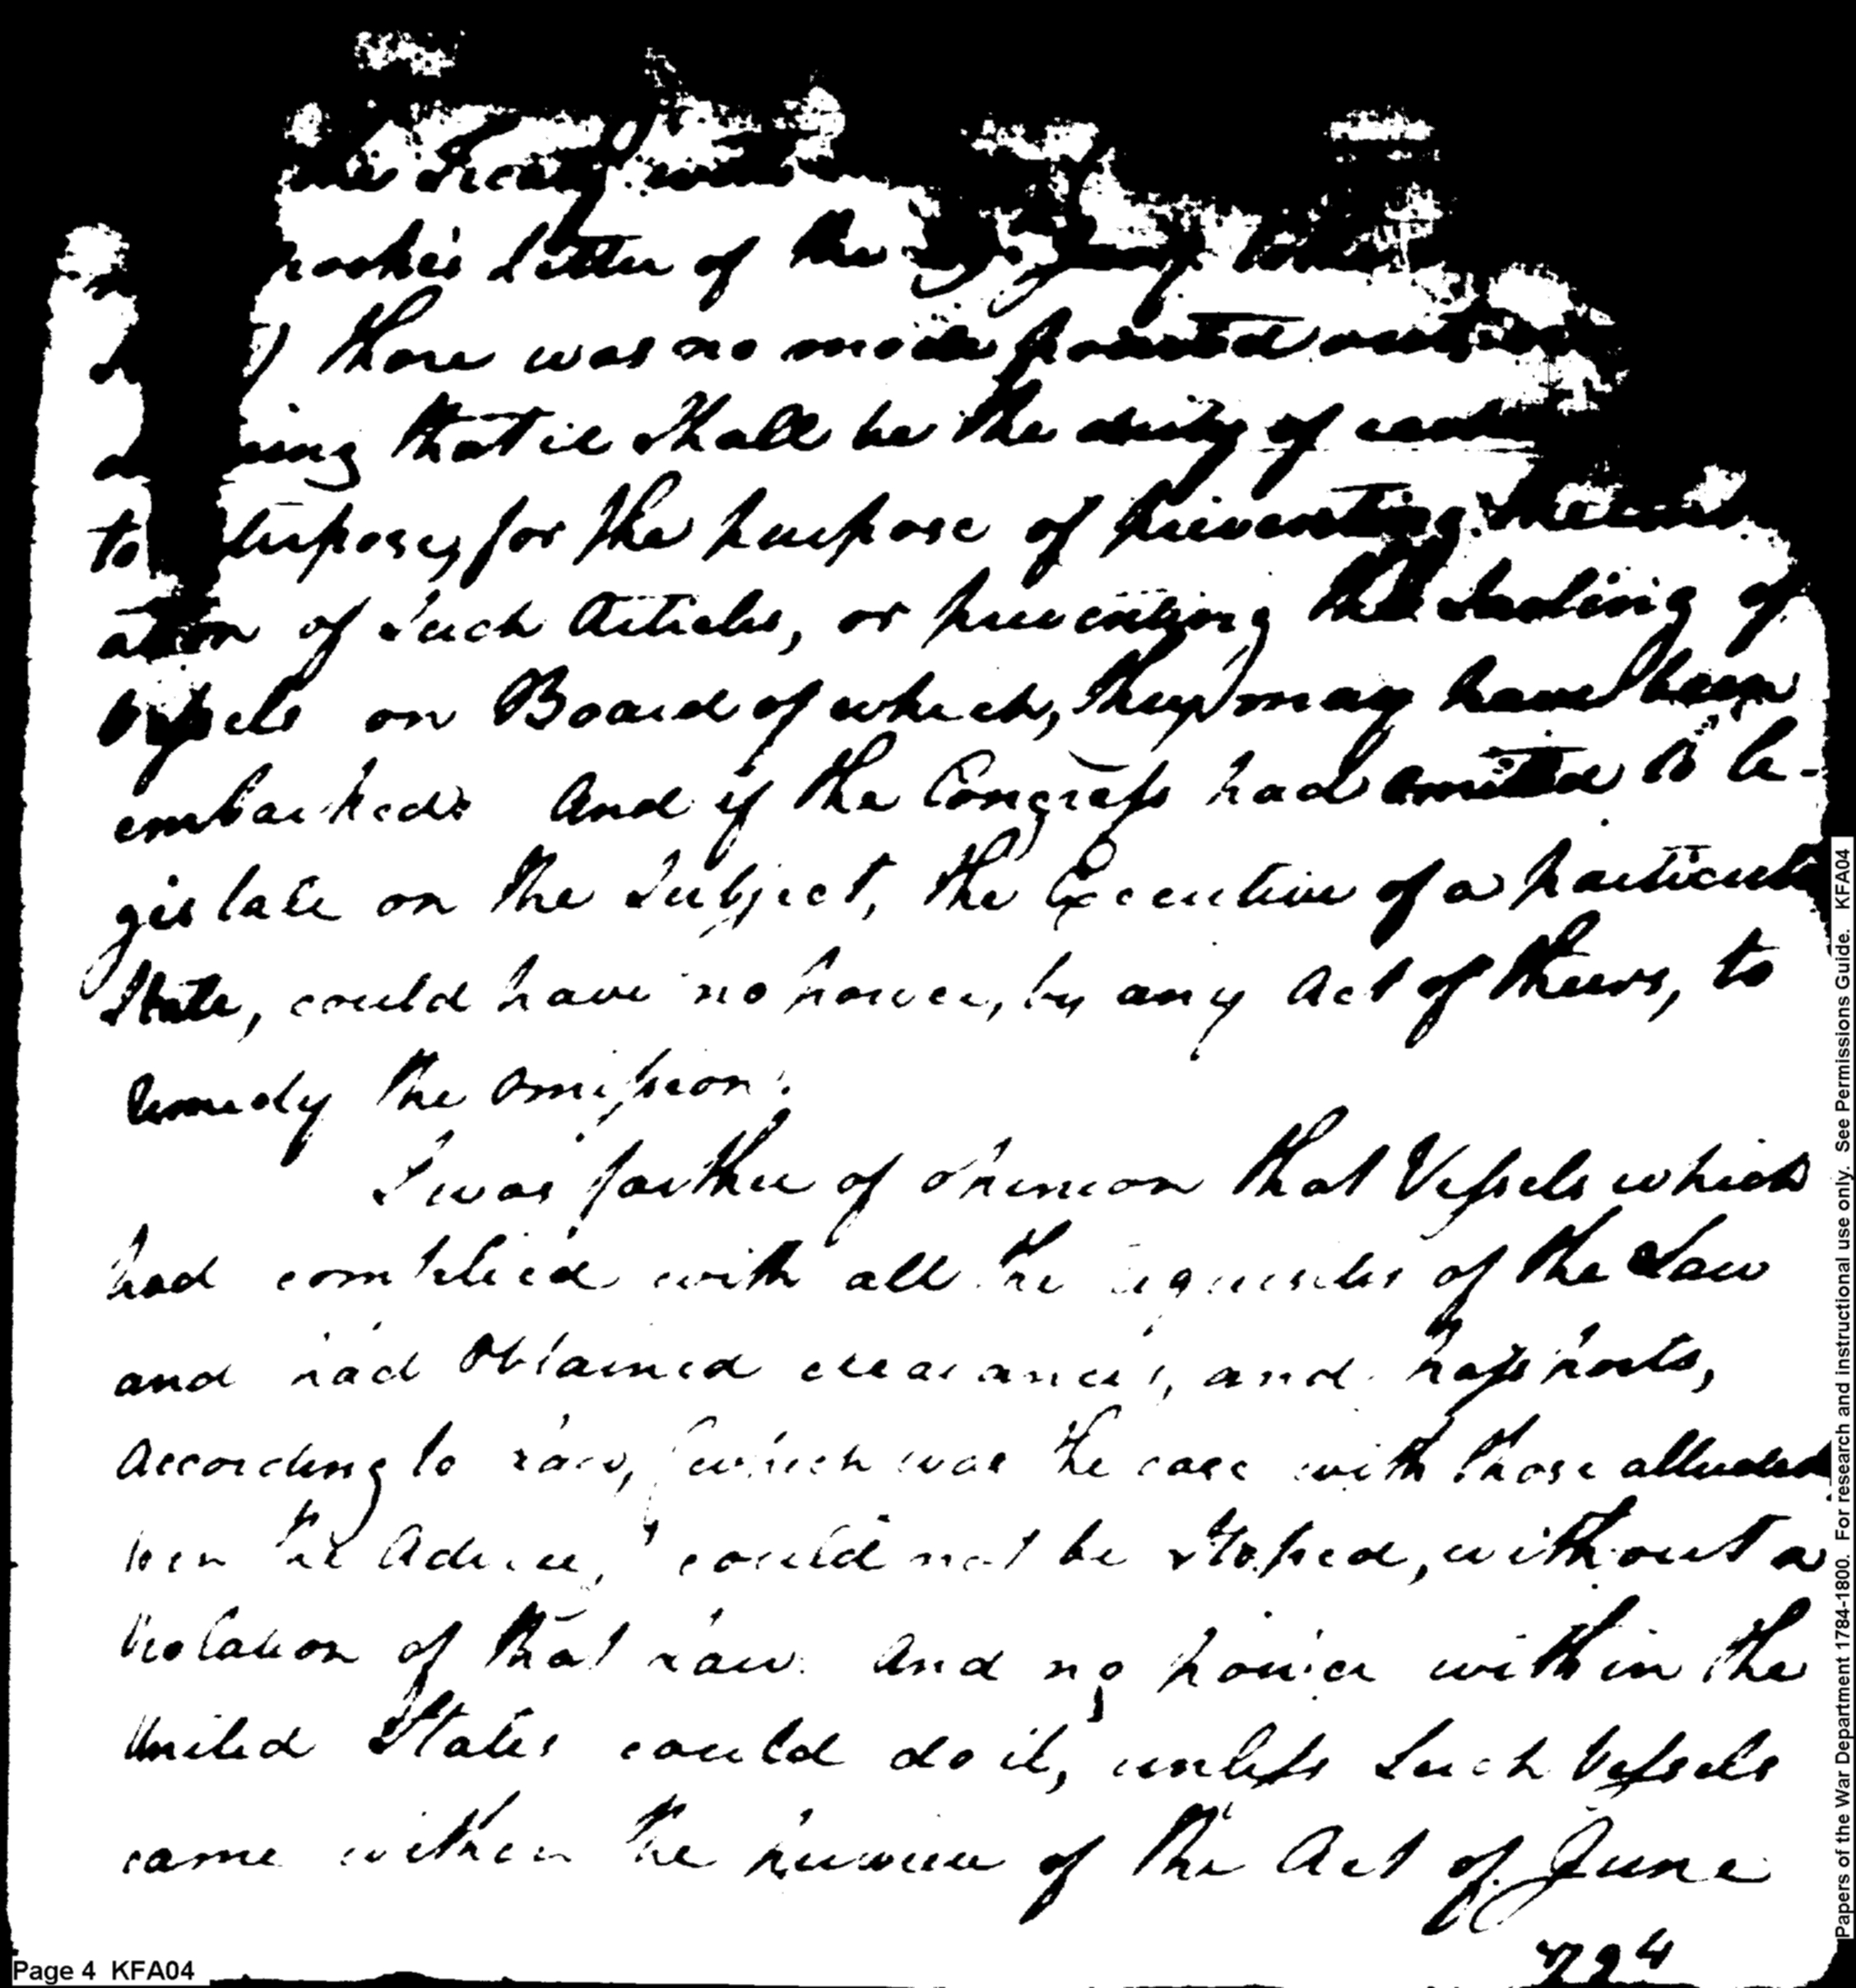 letter of the
there was no mode pointed out
ing that it shall be the duty of
to purposes, for the purpose of preventing
ation of such Articles, or preventing the sailing of
Vessels on Board of which, they may have been
embarked. And if the Congress had omitted to le-
gislate on the subject, the Executive of a particular
State, could have no power, by any Act of theirs, to
remedy the omission.
I was farther of opinion that Vessels which
had complied with all the requisites of the Law
and had obtained clearances, and passports,
According to law, (which was the case with those alluded
to in the Advice,) could not be stopped, without a
violation of that law. And no power within the
United States could do it, unless such Vessels
came within the purview of the Act of June
724
Page 4 KFA04
Papers of the War Department 1784-1800. For research and instructional use only. See Permissions Guide. KFA04